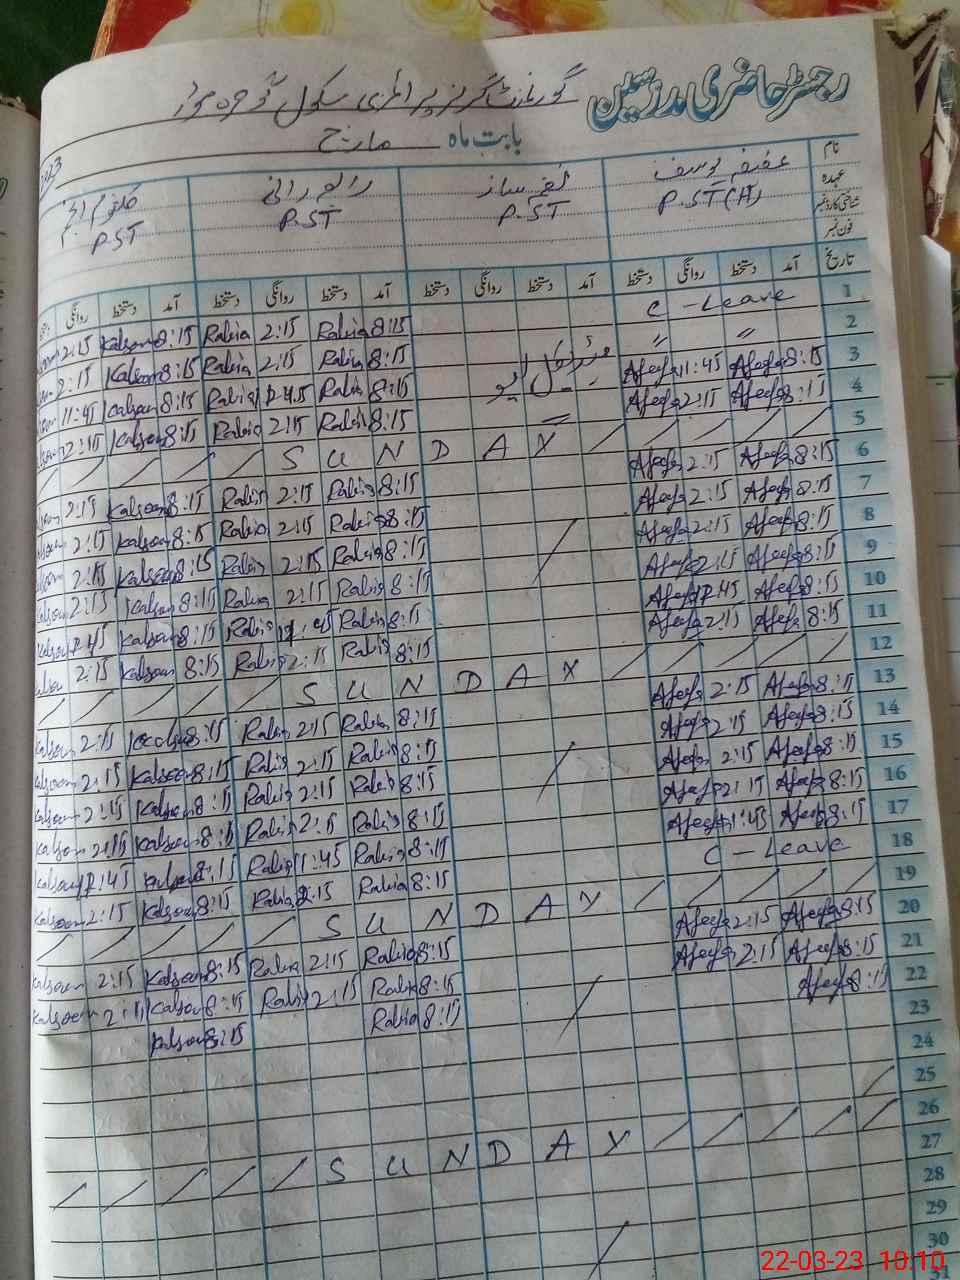 رجسٹر حاضری مدرسین
گورنمنٹ گرلز پرائمری سکول
بابت ماہ مارچ
نام عفیفہ یوسف نغمہ ساز رابعہ رانی کلثوم
عہدہ P.ST (H) P.ST P.ST P.ST
شناختی کارڈ نمبر
فون نمبر
تاریخ آمد دستخط روانگی دستخط آمد دستخط روانگی دستخط آمد دستخط روانگی دستخط آمد دستخط روانگی
2:15 Kalsoon 8:15 Rabia 2:15 Rabia 8:15 C - Leave 1
2:15 Kalsoon 8:15 Rabia 2:15 Rabia 8:15 〃 〃 2
11:45 Kalsoon 8:15 Rabia Rabia 8:15 Afeefa 11:45 Afeefa 8:15 3
2:15 Kalsoon 8:15 Rabia 2:15 Rabia 8:15 = Afeefa 2:15 Afeefa 8:15 4
/ / / / S U N D A Y / / / / / 5
2:15 Kalsoon 8:15 Rabia 2:15 Rabia 8:15 Afeefa 2:15 Afeefa 8:15 6
2:15 Kalsoon 8:15 Rabia 2:15 Rabia 8:15 Afeefa 2:15 Afeefa 8:15 7
2:15 Kalsoon 8:15 Rabia 2:15 Rabia 8:15 Afeefa 2:15 Afeefa 8:15 8
Kalsoon 2:15 Kalsoon 8:15 Rabia 2:15 Rabia 8:15 Afeefa 2:15 Afeefa 8:15 9
Kalsoon Kalsoon 8:15 Rabia Rabia 8:15 Afeefa Afeefa 8:15 10
2:15 Kalsoon 8:15 Rabia 2:15 Rabia 8:15 Afeefa 2:15 Afeefa 8:15 11
/ / / / / S U N D A Y / / / / / 12
Kalsoon 2:15 Kalsoon 8:15 Rabia 2:15 Rabia 8:15 Afeefa 2:15 Afeefa 8:15 13
Kalsoon 2:15 Kalsoon 8:15 Rabia 2:15 Rabia 8:15 Afeefa 2:15 Afeefa 8:15 14
Kalsoon 2:15 Kalsoon 8:15 Rabia 2:15 Rabia 8:15 Afeefa 2:15 Afeefa 8:15 15
Kalsoon 2:15 Kalsoon 8:15 Rabia 2:15 Rabia 8:15 Afeefa 2:15 Afeefa 8:15 16
Kalsoon Kalsoon 8:15 Rabia 11:45 Rabia 8:15 Afeefa Afeefa 8:15 17
Kalsoon 2:15 Kalsoon 8:15 Rabia 2:15 Rabia 8:15 C - Leave 18
/ / / / / S U N D A Y / / / / / 19
Kalsoon 2:15 Kalsoon 8:15 Rabia 2:15 Rabia 8:15 Afeefa 2:15 Afeefa 8:15 20
Kalsoon 2:15 Kalsoon 8:15 Rabia 2:15 Rabia 8:15 Afeefa 2:15 Afeefa 8:15 21
Kalsoon 8:15 Rabia 8:15 Afeefa 8:15 22
23
24
25
/ / / / / S U N D A Y / / / / / 26
27
28
29
30
31
22-03-23 10:10